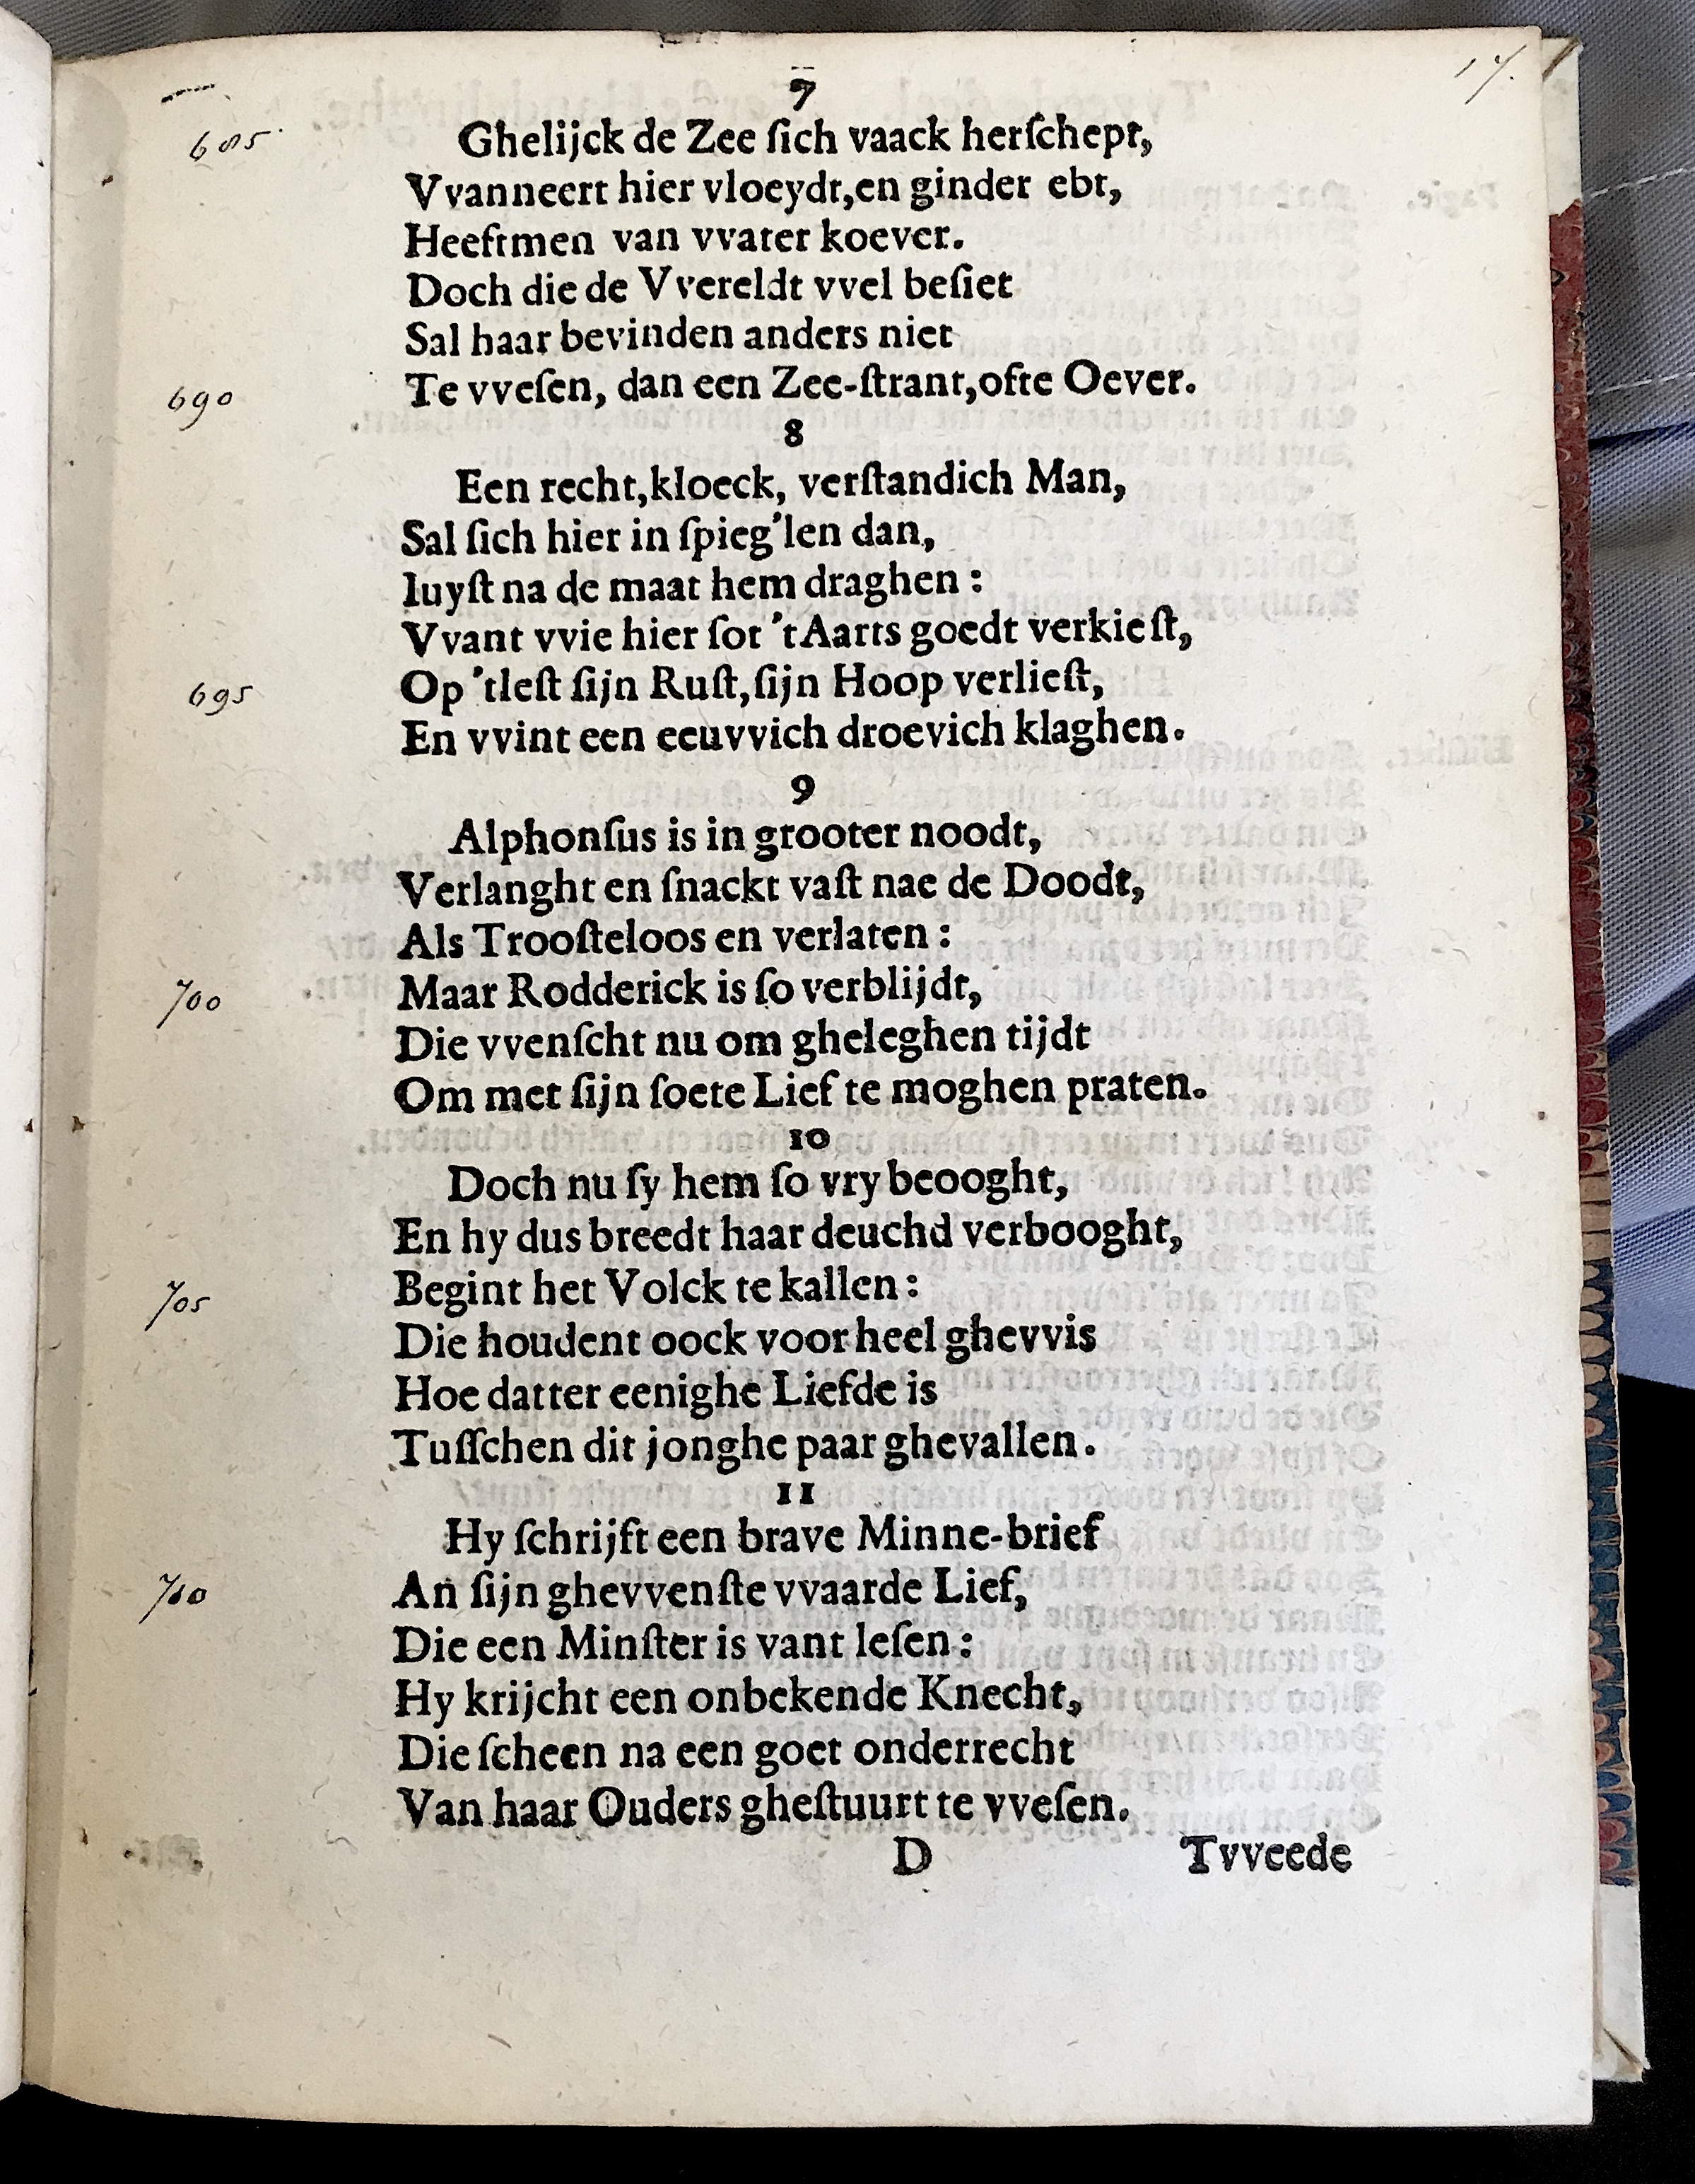 17.
7
685 Ghelijck de Zee ſich vaack herſchept,
Vvanneert hier vloeydt,en ginder ebt,
Heeftmen van vvater koever.
Doch die de Vvereldt vvel beſiet
Sal haar bevinden anders niet
690 Te vveſen, dan een Zee-ſtrant,ofte Oever.
8
Een recht,kloeck, verſtandich Man,
Sal ſich hier in ſpieg'len dan,
Iuyſt na de maat hem draghen:
Vvant vvie hier ſot 'tAarts goedt verkieſt,
695 Op 'tleſt ſijn Ruſt,ſijn Hoop verlieſt,
En vvint een eeuvvich droevich klaghen.
9
Alphonſus is in grooter noodt,
Verlanght en ſnackt vaſt nae de Doodt,
Als Trooſteloos en verlaten:
700 Maar Rodderick is ſo verblijdt,
Die vvenſcht nu om gheleghen tijdt
Om met ſijn ſoete Lief te moghen praten.
10
Doch nu ſy hem ſo vry beooght,
En hy dus breedt haar deuchd verbooght,
705 Begint het Volck te kallen:
Die houdent oock voor heel ghevvis
Hoe datter eenighe Liefde is
Tuſſchen dit jonghe paar ghevallen.
11
Hy ſchrijft een brave Minne-brief
710 An ſijn ghevvenſte vvaarde Lief,
Die een Minſter is vant leſen:
Hy krijcht een onbekende Knecht,
Die ſcheen na een goet onderrecht
Van haar Ouders gheſtuurt te vveſen.
D Tvveede